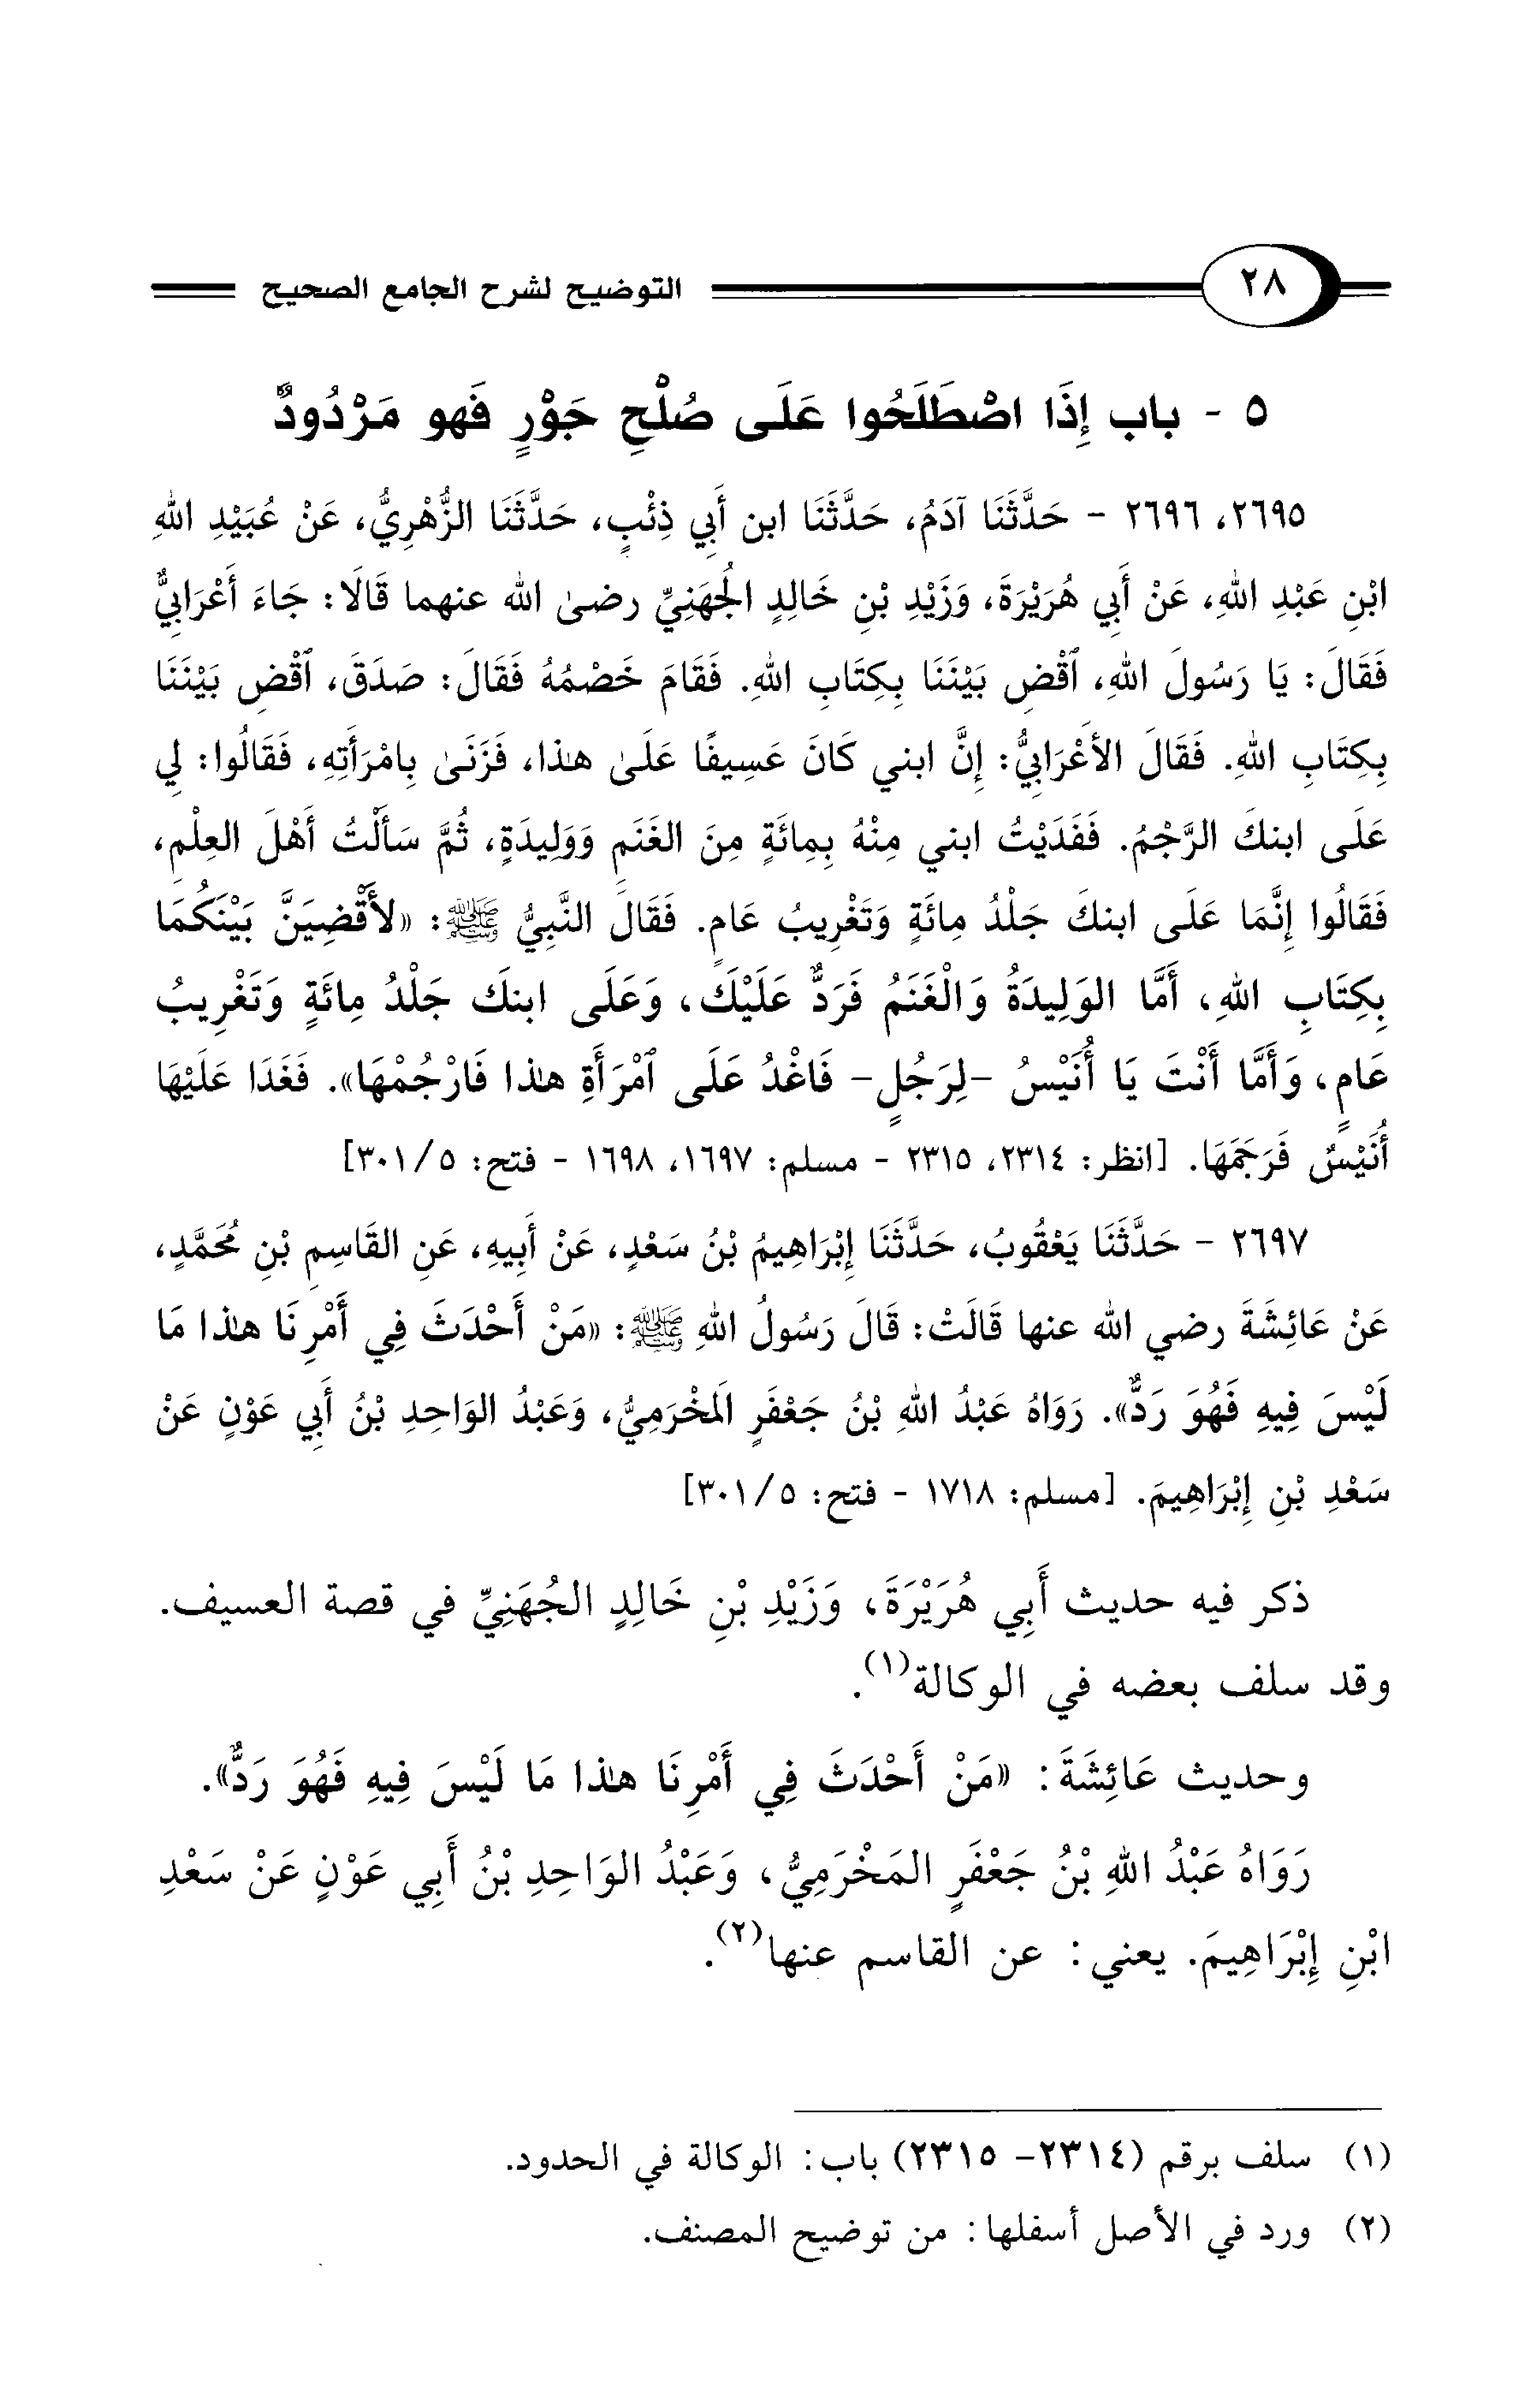 ٢٨
التوضيح لشرح الجامع الصحيح
٥ - باب إِذَا اصْطَلَحُوا عَلَى صُلْحِ جَوْرٍ فَهو مَرْدُودٌ
٢٦٩٥، ٢٦٩٦ - حَدَّثَنَا آدَمُ، حَدَّثَنَا ابن أَبِي ذِئْبٍ، حَدَّثَنَا الزُّهْرِيُّ، عَنْ عُبَيْدِ اللهِ
ابْنِ عَبْدِ اللهِ، عَنْ أَبِي هُرَيْرَةَ، وَزَيْدِ بْنِ خَالِدٍ الْجُهَنِيِّ رضىٰ الله عنهما قَالَا: جَاءَ أَعْرَابِيٌّ
فَقَالَ: يَا رَسُولَ اللهِ، ٱقْضِ بَيْنَنَا بِكِتَابِ اللهِ. فَقَامَ خَصْمُهُ فَقَالَ: صَدَقَ، ٱقْضِ بَيْنَنَا
بِكِتَابِ اللهِ. فَقَالَ الأَعْرَابِيُّ: إِنَّ ابني كَانَ عَسِيفًا عَلَىٰ هٰذا، فَزَنَىٰ بِامْرَأَتِهِ، فَقَالُوا: لِي
عَلَى ابنكَ الرَّجْمُ. فَفَدَيْتُ ابني مِنْهُ بِمِائَةٍ مِنَ الغَنَمِ وَوَلِيدَةٍ، ثُمَّ سَأَلْتُ أَهْلَ العِلْمِ،
فَقَالُوا إِنَّمَا عَلَى ابنكَ جَلْدُ مِائَةٍ وَتَغْرِيبُ عَامٍ. فَقَالَ النَّبِيُّ ﷺ: «لأَقْضِيَنَّ بَيْنَكُمَا
بِكِتَابِ اللهِ، أَمَّا الوَلِيدَةُ وَالْغَنَمُ فَرَدٌّ عَلَيْكَ، وَعَلَى ابنكَ جَلْدُ مِائَةٍ وَتَغْرِيبُ
عَامٍ، وَأَمَّا أَنْتَ يَا أُنَيْسُ -لِرَجُلٍ- فَاغْدُ عَلَى ٱمْرَأَةِ هٰذا فَارْجُمْهَا». فَغَدَا عَلَيْهَا
أُنَيْسٌ فَرَجَمَهَا. [انظر: ٢٣١٤، ٢٣١٥ - مسلم: ١٦٩٧، ١٦٩٨ - فتح: ٥/٣٠١]
٢٦٩٧ - حَدَّثَنَا يَعْقُوبُ، حَدَّثَنَا إِبْرَاهِيمُ بْنُ سَعْدٍ، عَنْ أَبِيهِ، عَنِ القَاسِمِ بْنِ مُحَمَّدٍ،
عَنْ عَائِشَةَ رضي الله عنها قَالَتْ: قَالَ رَسُولُ اللهِ ﷺ: «مَنْ أَحْدَثَ فِي أَمْرِنَا هٰذا مَا
لَيْسَ فِيهِ فَهُوَ رَدٌّ». رَوَاهُ عَبْدُ اللهِ بْنُ جَعْفَرٍ الَمخْرَمِيُّ، وَعَبْدُ الوَاحِدِ بْنُ أَبِي عَوْنٍ عَنْ
سَعْدِ بْنِ إِبْرَاهِيمَ. [مسلم: ١٧١٨ - فتح: ٥/٣٠١]
ذكر فيه حديث أَبِي هُرَيْرَةَ، وَزَيْدِ بْنِ خَالِدٍ الجُهَنِيِّ في قصة العسيف.
وقد سلف بعضه في الوكالة(١).
وحديث عَائِشَةَ: «مَنْ أَحْدَثَ فِي أَمْرِنَا هٰذا مَا لَيْسَ فِيهِ فَهُوَ رَدٌّ».
رَوَاهُ عَبْدُ اللهِ بْنُ جَعْفَرٍ المَخْرَمِيُّ، وَعَبْدُ الوَاحِدِ بْنُ أَبِي عَوْنٍ عَنْ سَعْدِ
ابْنِ إِبْرَاهِيمَ. يعني: عن القاسم عنها(٢).
(١) سلف برقم (٢٣١٤- ٢٣١٥) باب: الوكالة في الحدود.
(٢) ورد في الأصل أسفلها: من توضيح المصنف.